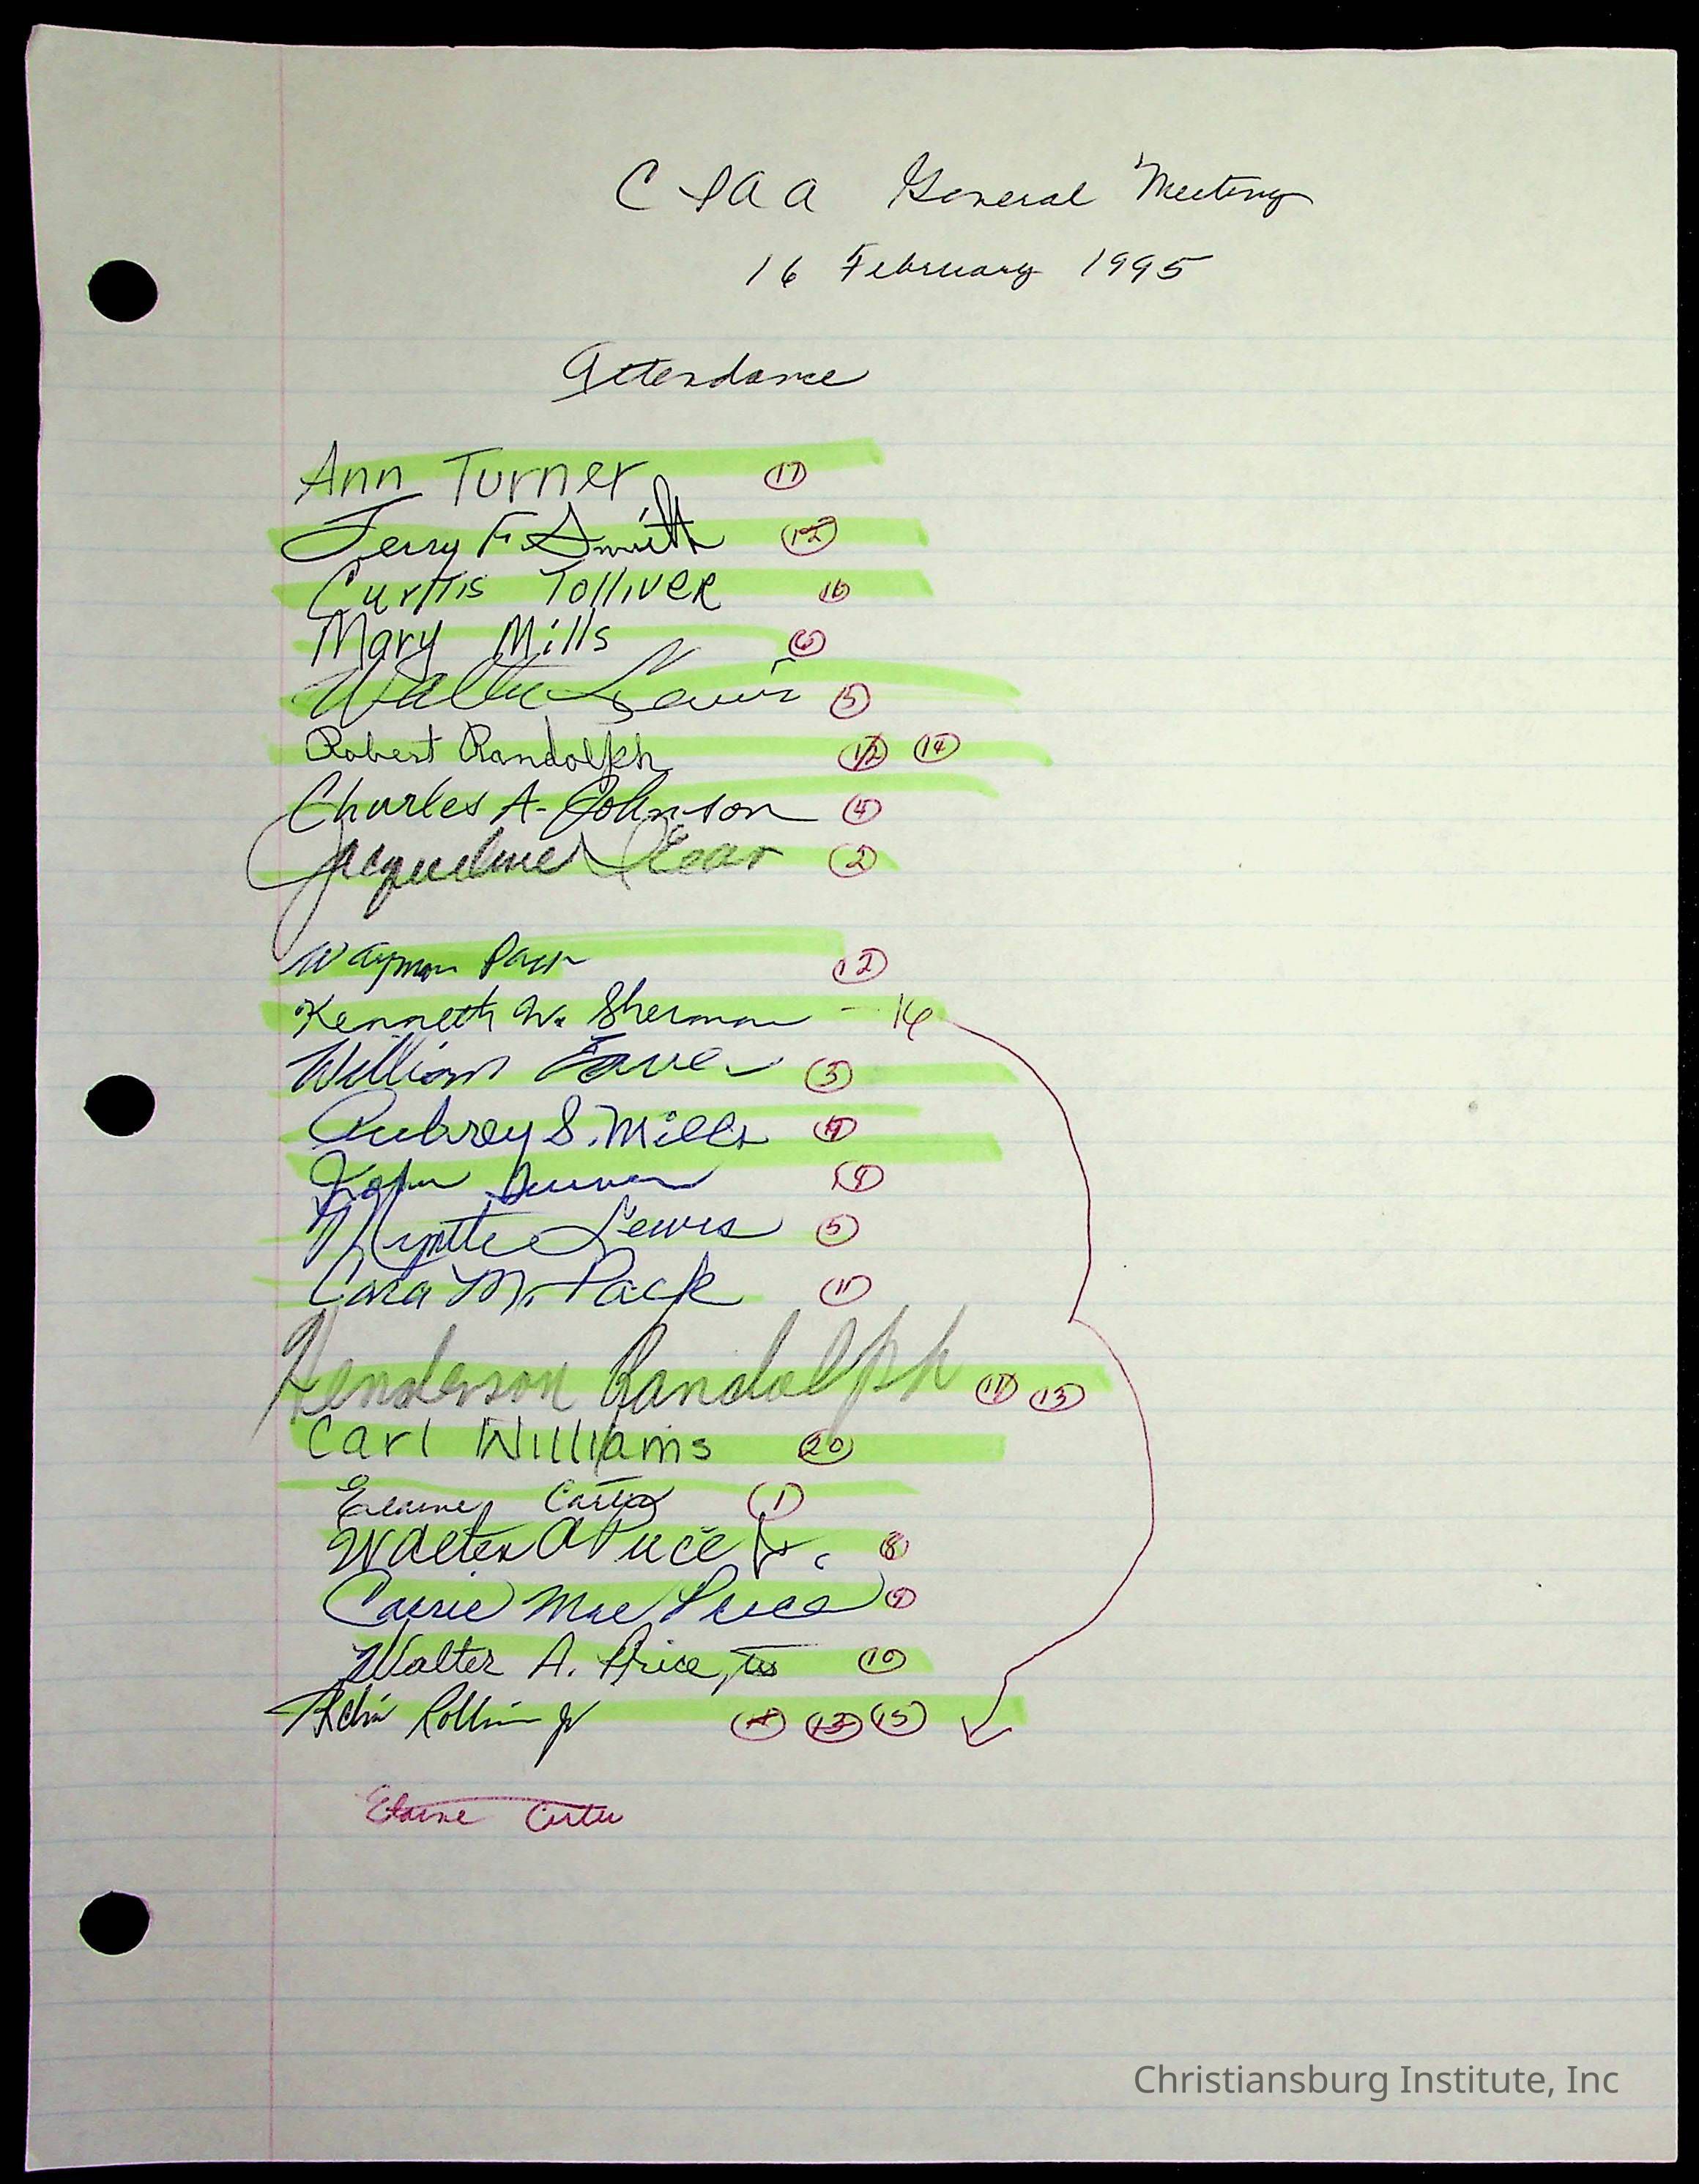 CIAA General Meeting
16 February 1995
Attendance
Ann Turner 17
Jerry F. Smith 12
Curttis Tolliver 16
Mary Mills 6
Walter Lewis 5
Robert Randolph 12 14
Charles A. Johnson 4
Jacqueline 2
Wayman Pack 12
Kenneth W. Sherman - 16
William 3
Aubrey S. Mills
John
Myrtle Lewis 5
Cora M. Pack 11
Henderson Randolph 11 13
Carl Williams 20
Elaine Carter 1
Walter A Price Jr. 8
Carrie Mae Price 9
Walter A. Price, III 10
Rollins Jr 13 15
Elaine Carter
Christiansburg Institute, Inc